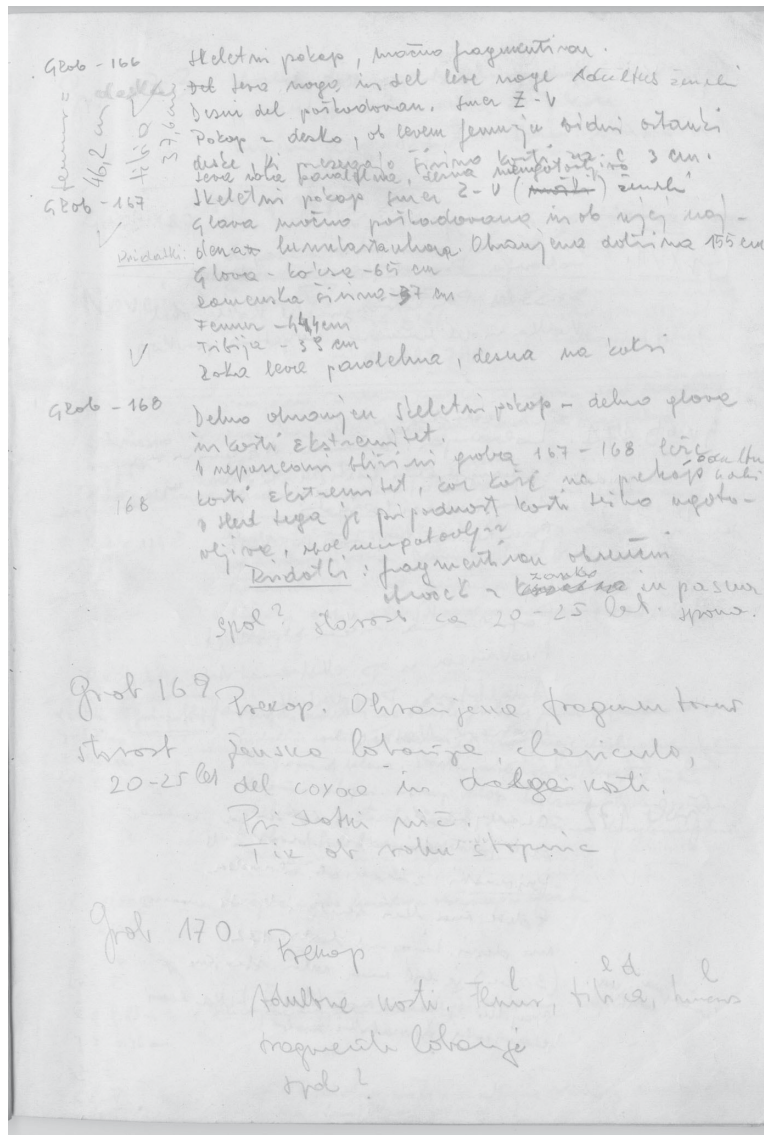 Grob - 166 Skeletni pokop, močno fragmentiran.
leva noga, in del leve noge Adultus ženski
Desni del poškodovan. smer Z-V
femur = 46,2 cm
tibia 37,6 cm
Pokop z desko, ob levem femurju vidni ostanki
deske, ki presegajo širino kosti na c 3 cm.
leva roka paralelna, desna neugotovljivo
Grob - 167 Skeletni pokop smer Z-V (moški) ženski
Glava močno poškodovana in ob njej naj-
Pridatki: Ohranjena dolžina 155 cm
Glava - koksa - 65 cm
ramenska širina - 37 cm
Femur - 44,4 cm
Tibija - 35 cm
Roka leva paralelna, desna na koksi
Grob - 168 Delno ohranjen skeletni pokop - delno glava
in kosti ekstremitet.
V neposredni bližini groba 167 - 168 leže
kosti ekstremitet, kar kaže na prekop
168 sled tega je pripadnost kosti težko ugoto-
vljiva,
Pridatki: fragmentiran obsenčni
obroček z zanko in pasna
spona.
spol? starost ca 20-25 let.
Grob 169 Prekop. Ohranjena fragmentirana
starost ženska lobanja, clavicula,
20-25 let del coxae in dolge kosti.
Pridatki nič.
Tik ob robu stopnic
Grob 170
Prekop
l l d l
Adultne kosti. Femur, tibia, humerus
fragmenti lobanje
spol?